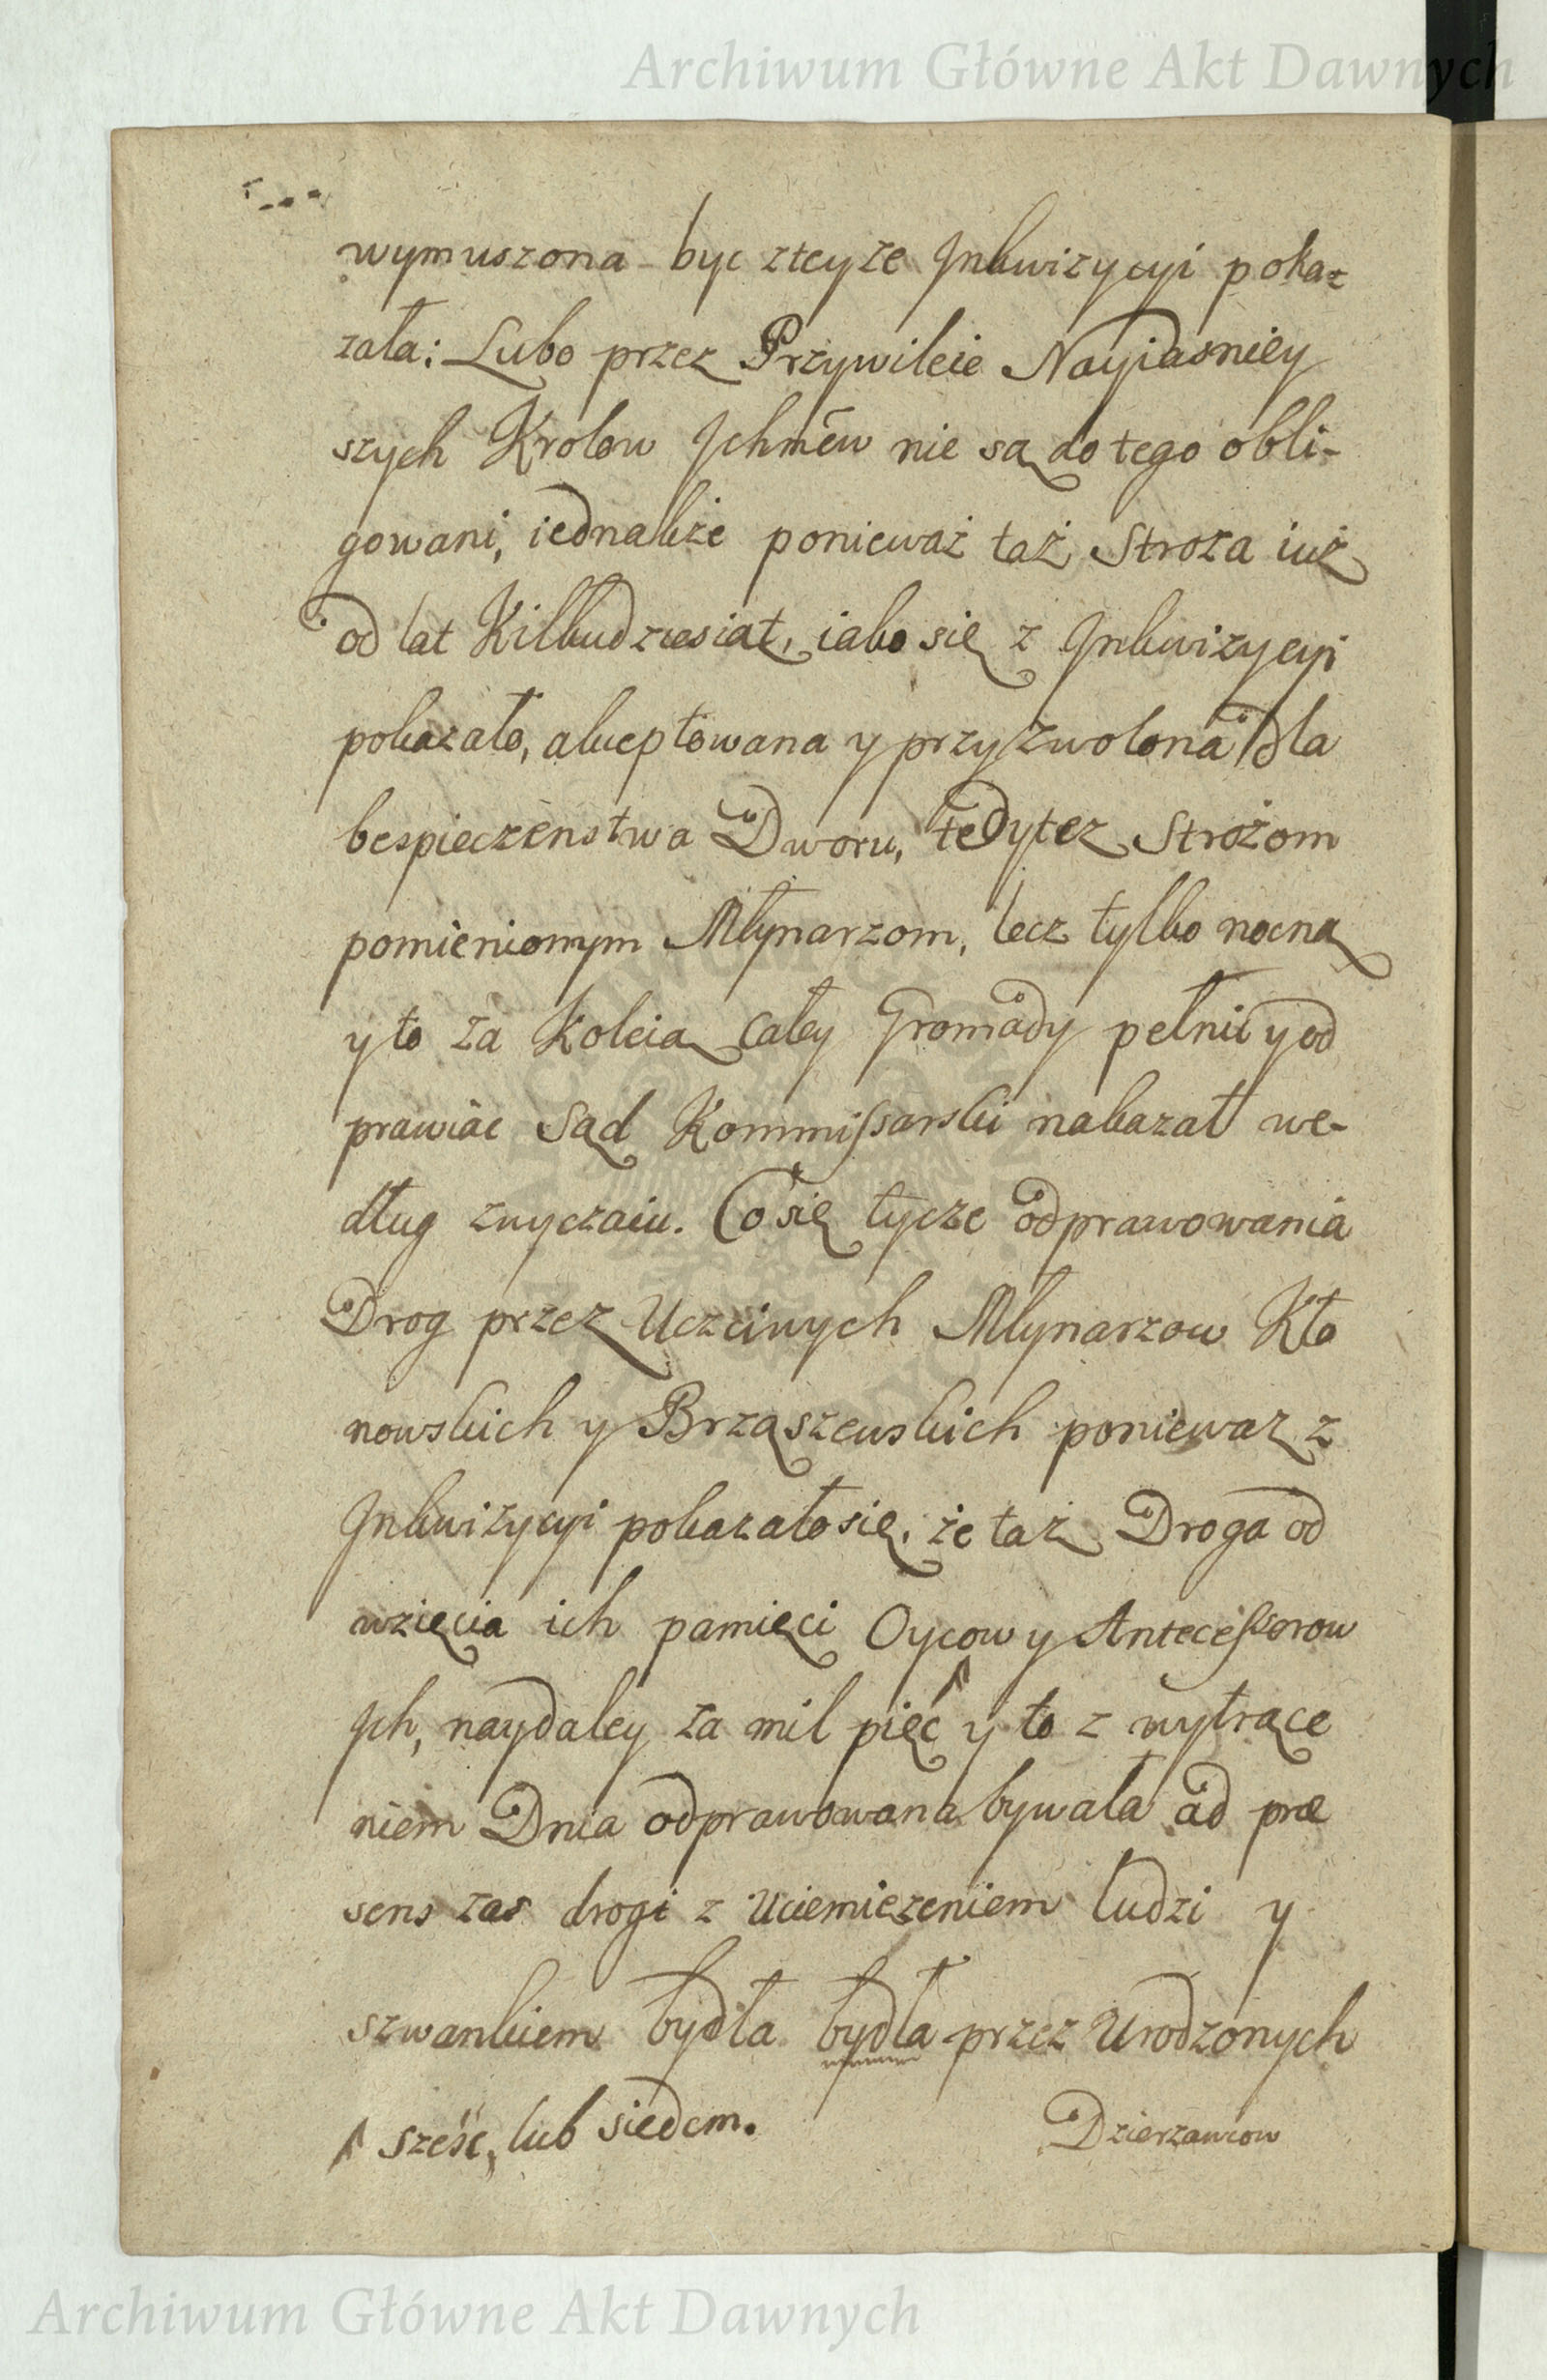 Archiwum Główne Akt Dawnych
wymuszona byc zteyze Jnkwizycyi poka=
zała: Lubo przez Przywileie Nayiasniey
szych Krolow Jchmēw nie są do tego obli-
gowani, iednakże ponieważ taż Stroza iuż
od lat Kilkudziesiąt, iako się z Jnkwizycyi
pokazało, akceptowana y przyzwolona dla
bespieczenstwa Dworu, tedy tez Strożom
pomienionym Młynarzom, lecz tylko nocną
y to za Koleią całey Gromady pełnic y od
prawiac Sąd Kommissarski nakazał we-
dług zwyczaiu. Co się tycze odprawowania
Drog przez Uczciwych Młynarzow Kło
nowskich y Brząszewskich poniewaz z
Jnkwizycyi pokazało się, że taż Droga od
wzięcia ich pamięci Oycow y Antecessorow
Jch, naydaley za mil pięć y to z wytrące
niem Dnia odprawowana bywała ad præ
sens zas drogi z Uciemiezeniem ludzi y
szwankiem bydła bydła przez Urodzonych
sześć, lub siedem.
Dzierzawcow
Archiwum Główne Akt Dawnych